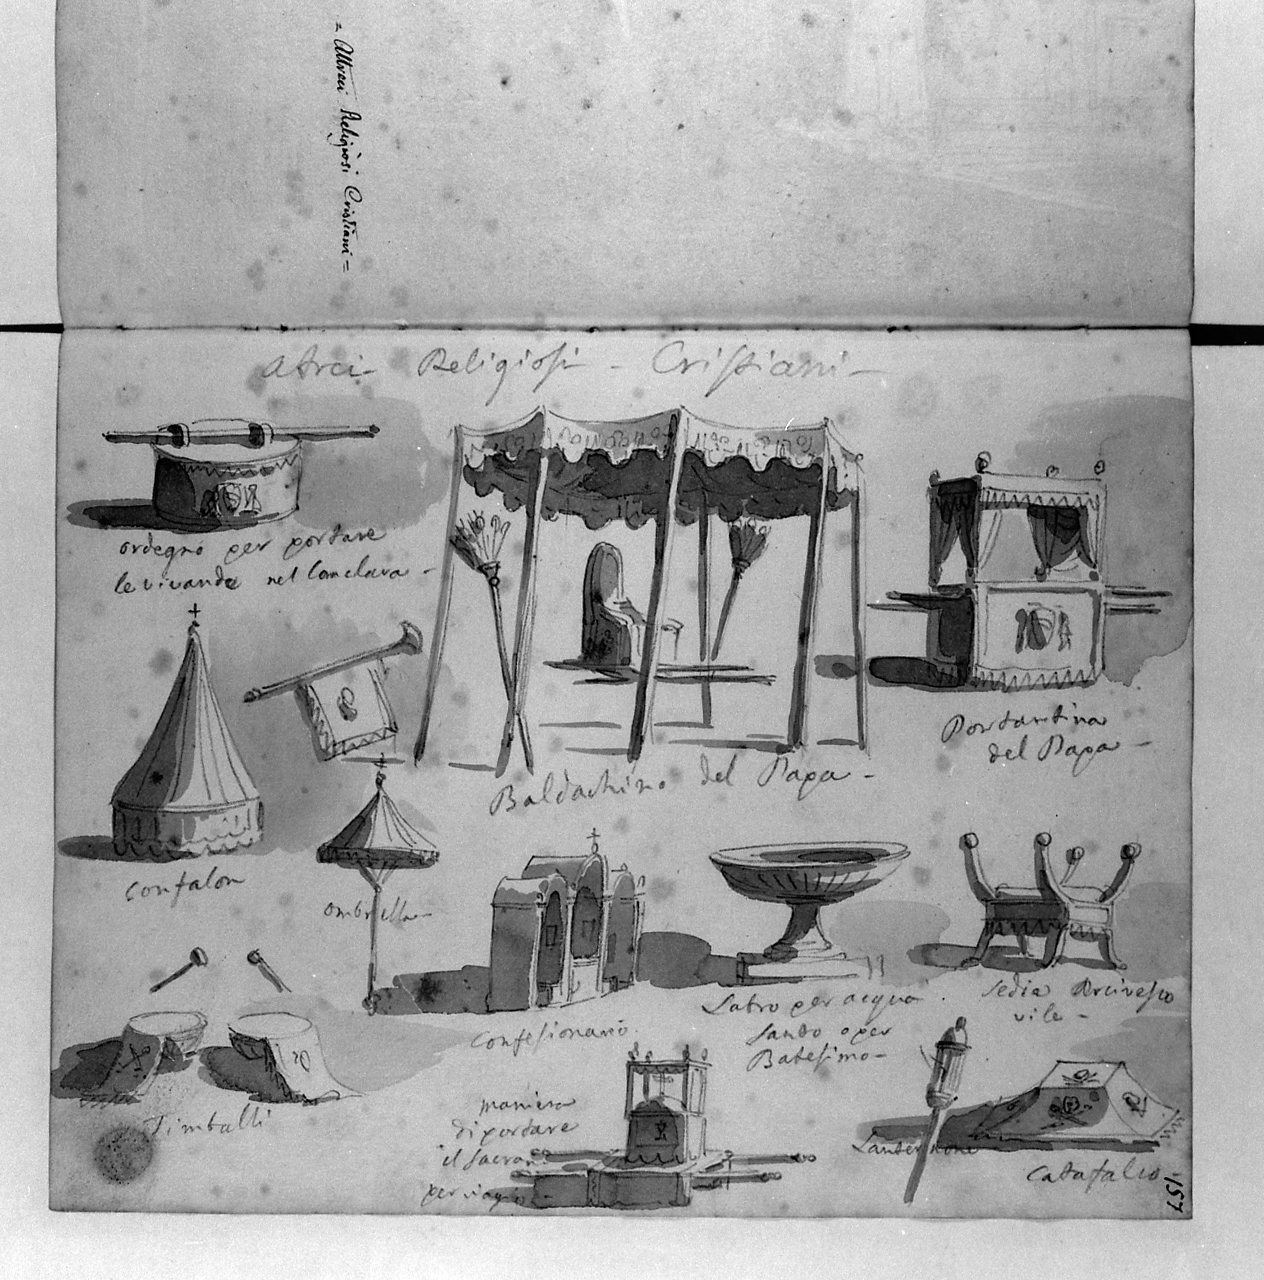 = Attreci Religiosi Cristiani =
Atreci - Religiosi - Cristiani -
ordegno per portare
le vivande nel Conclava -
Baldachino del Papa -
Portantina
del Papa -
Confalon
ombrella -
Confesionario
Labro per acqua
santo o per
Batesimo -
Sedia Arcivesco
vile -
Timballi
maniera
di portare
il Sacram.
per viagio -
Lanternone
Catafalco -
157